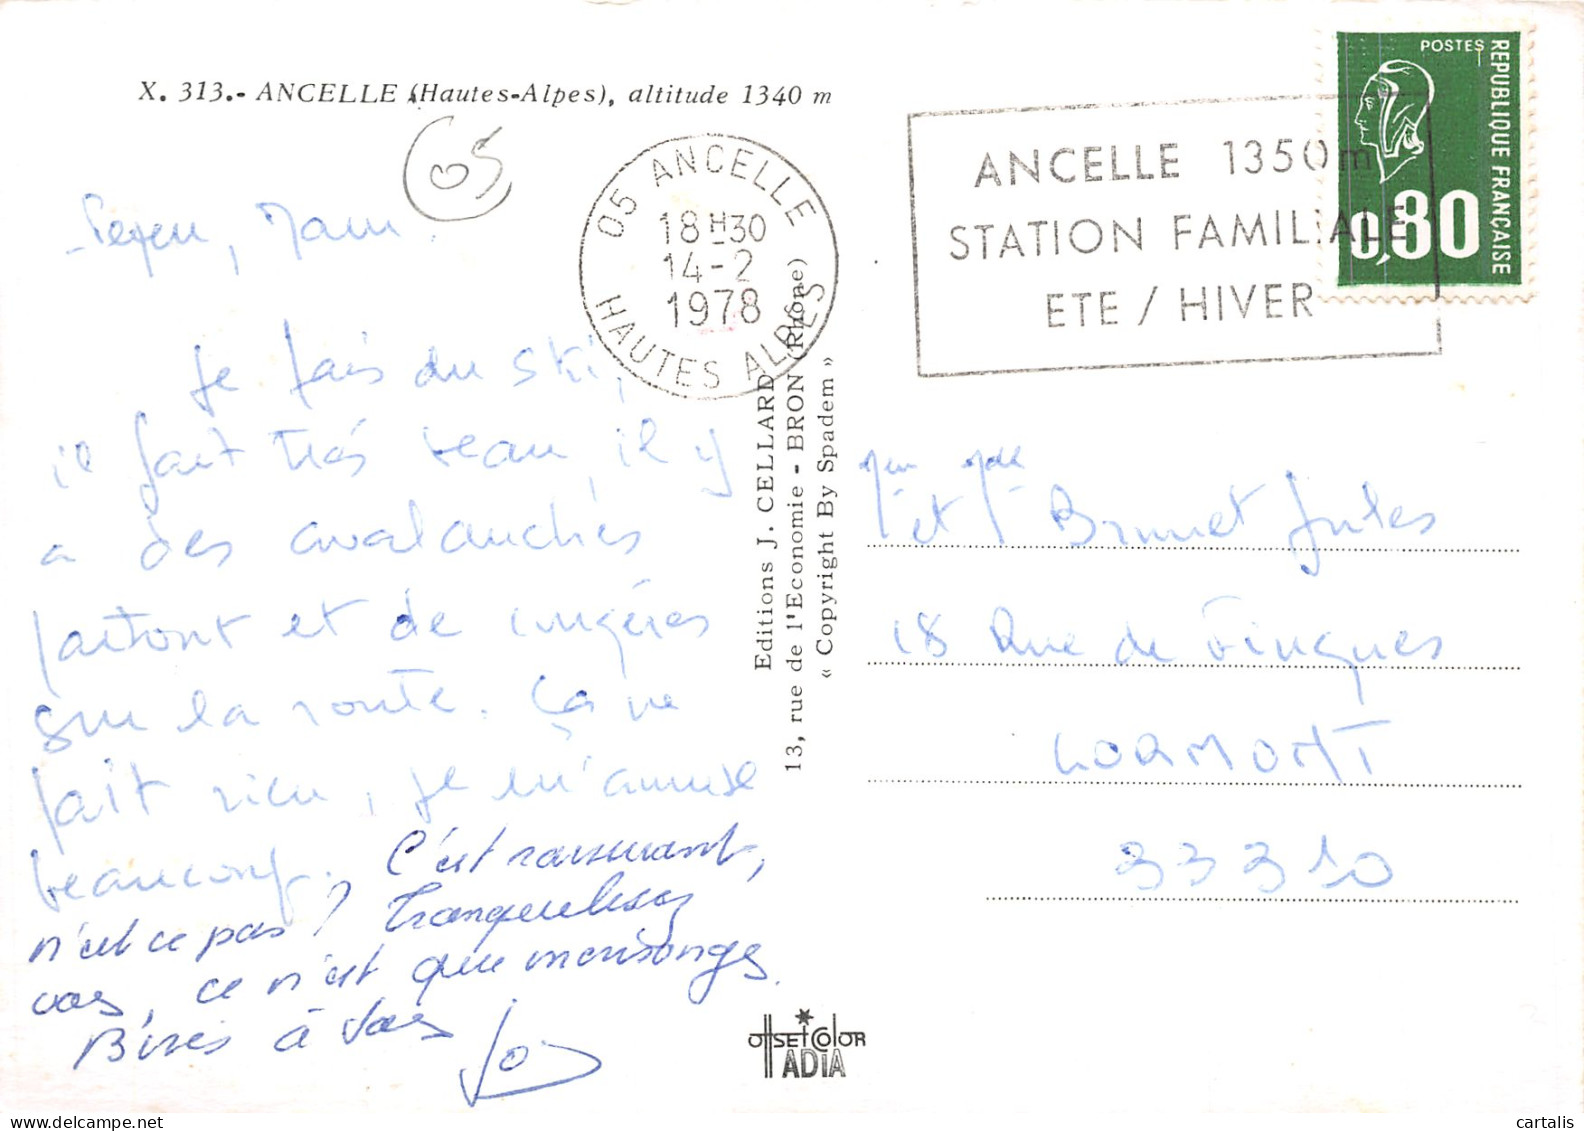 X. 313.- ANCELLE (Hautes-Alpes), altitude 1340 m
05
05 ANCELLE
18H30
14-2
1978
HAUTES ALPES
ANCELLE 1350m
STATION FAMILIALE
ETE / HIVER
POSTES
REPUBLIQUE FRANÇAISE
0,80
Je fais du ski,
il fait très beau, il y
a des avalanches
partout et de congères
sur la route. Ça ne
fait rien, je m'amuse
beaucoup. C'est rassurant,
n'est ce pas? Tranquilisez
vous, ce n'est que mensonges.
Bises à tous
Jo
Editions J. CELLARD
13, rue de l'Economie - BRON (Rhône)
« Copyright By Spadem »
et Brunet Jules
18 Rue de
LORMONT
33310
OffSET COlOR
ADIA
cartalis